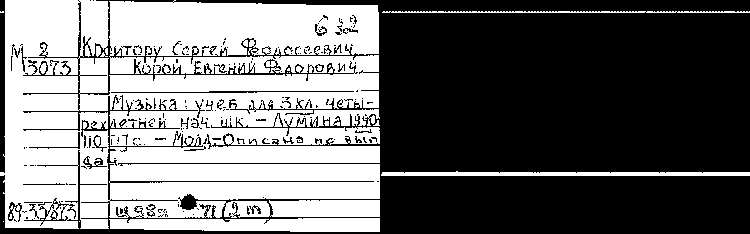 632
М 2 Кройтору, Сергей Феодосеевич,
13073 Корой, Евгений Федорович.
Музыка: учеб для 3 кл. четы-
рехлетней нач. шк. – Лумина, 1990
110, с. – Молд – Описано по вып
дан.
89-33/873 (2 т)